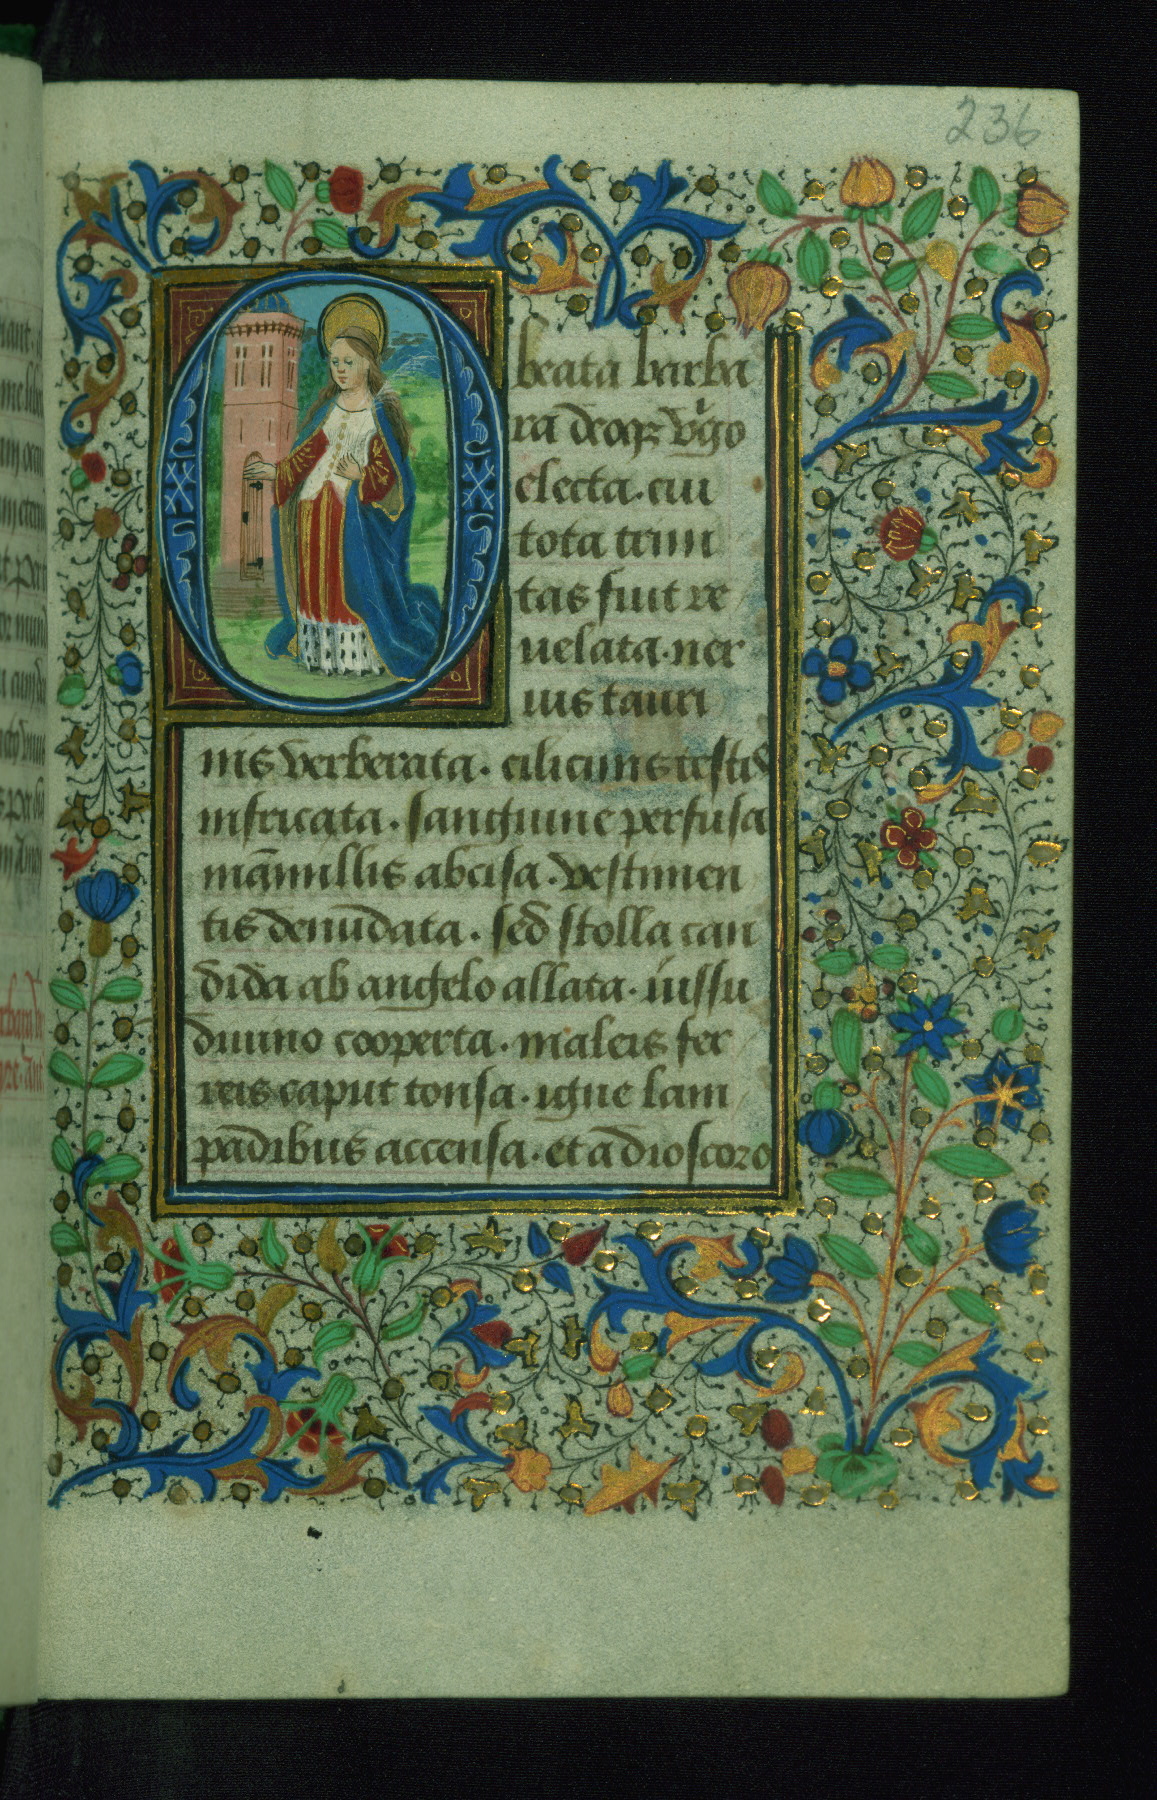 236
O beata barba
ra deoqꝫ v̾go
electa. cui
tota trini
tas fuit re
uelata. ner
uis tauri
nis verberata. cilicinis testis
infricata. sanguine perfusa
māmillis abcisa. vestimen
tis denudata. sed stolla can
dida ab angelo allata. iussu
diuino cooperta. maleis fer
reis caput tonsa. igne lam
padibus accensa. et a dioscoro